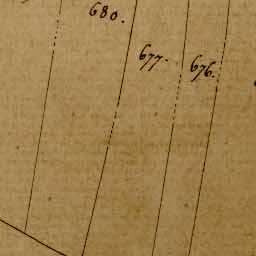 680.
677.
676.